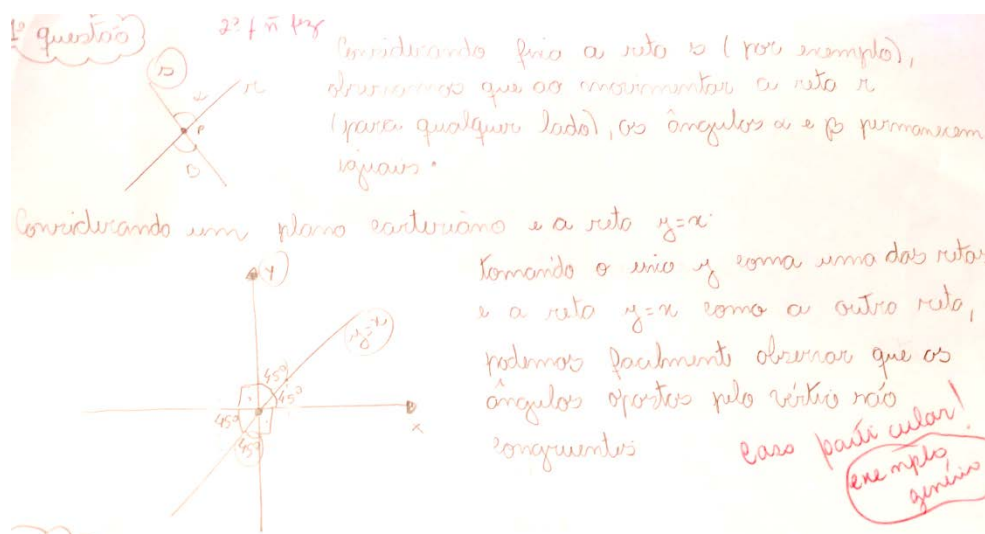 1ª questão
2ª f ñ fez
Considerando fixa a reta s (por exemplo),
observamos que ao movimentar a reta r
(para qualquer lado), os ângulos α e β permanecem
iguais.
s
α
r
P
β
Considerando um plano cartesiano e a reta y=x
tomando o eixo y como uma das retas
e a reta y=x como a outra reta,
podemos facilmente observar que os
ângulos opostos pelo vértice são
congruentes
Y
y=x
45º
45º
45º
45º
x
caso particular!
exemplo
genérico